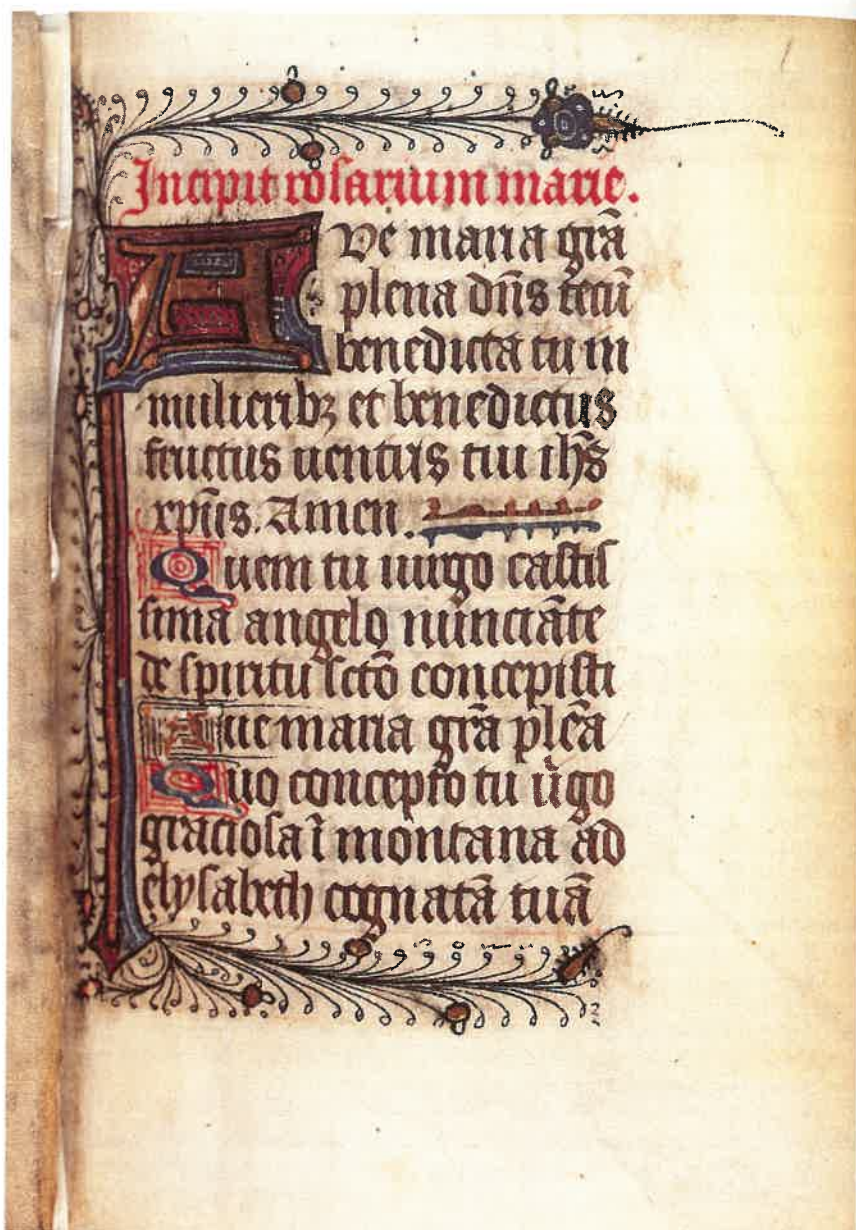 Incipit rosarium marie.
Ave maria grã
plena dñs tecũ
benedicta tu in
mulieribꝫ et benedictus
fructus uentris tui ihs̃
xpũs. Amen.
Quem tu uirgo castis
sima angelo nunciãte
de spiritu sctõ concepisti
Aue maria grã plẽa
Quo concepto tu ũgo
graciosa ĩ montana ad
elysabeth cognatã tuã